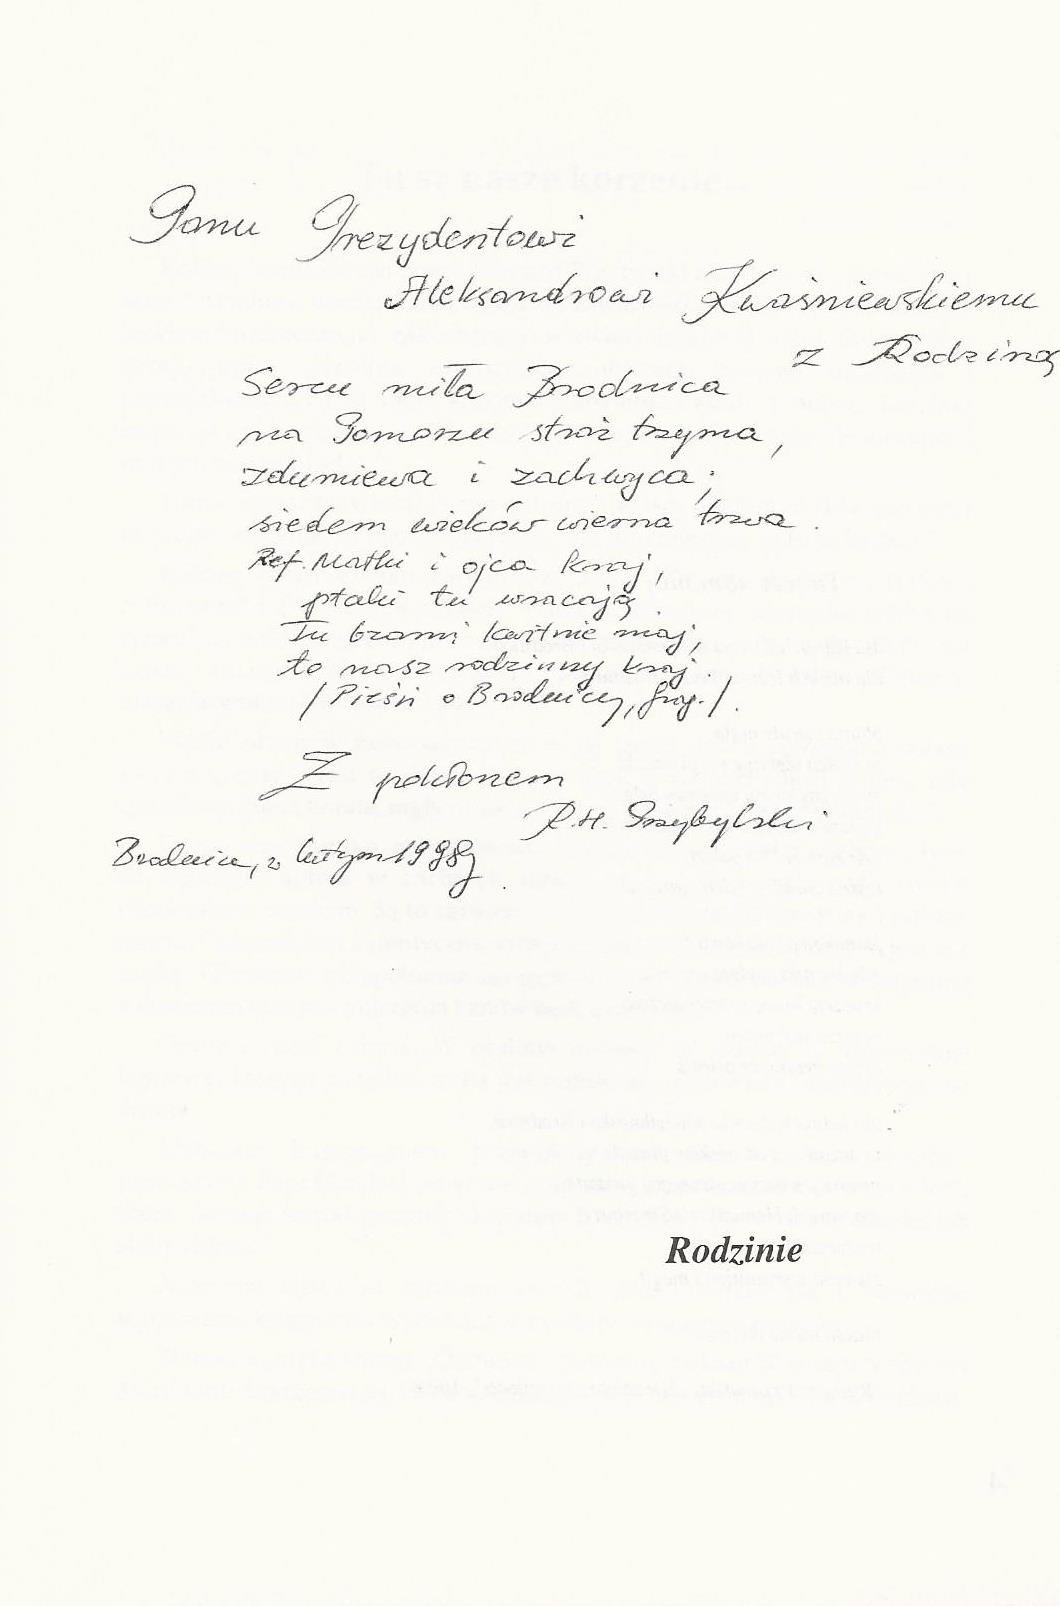 Panu Prezydentowi
Aleksandrowi Kwaśniewskiemu
z Rodziną
Sercu miła Brodnica
na Pomorzu straż trzyma,
zdumiewa i zachwyca;
siedem wieków wierna trwa.
Ref. Matki i ojca kraj,
ptaki tu wracają.
Tu bzami kwitnie maj,
to nasz rodzinny kraj
/Pieśń o Brodnicy, frag./.
Z pokłonem
R.H. Przybylski
Brodnica, w lutym 1998
Rodzinie